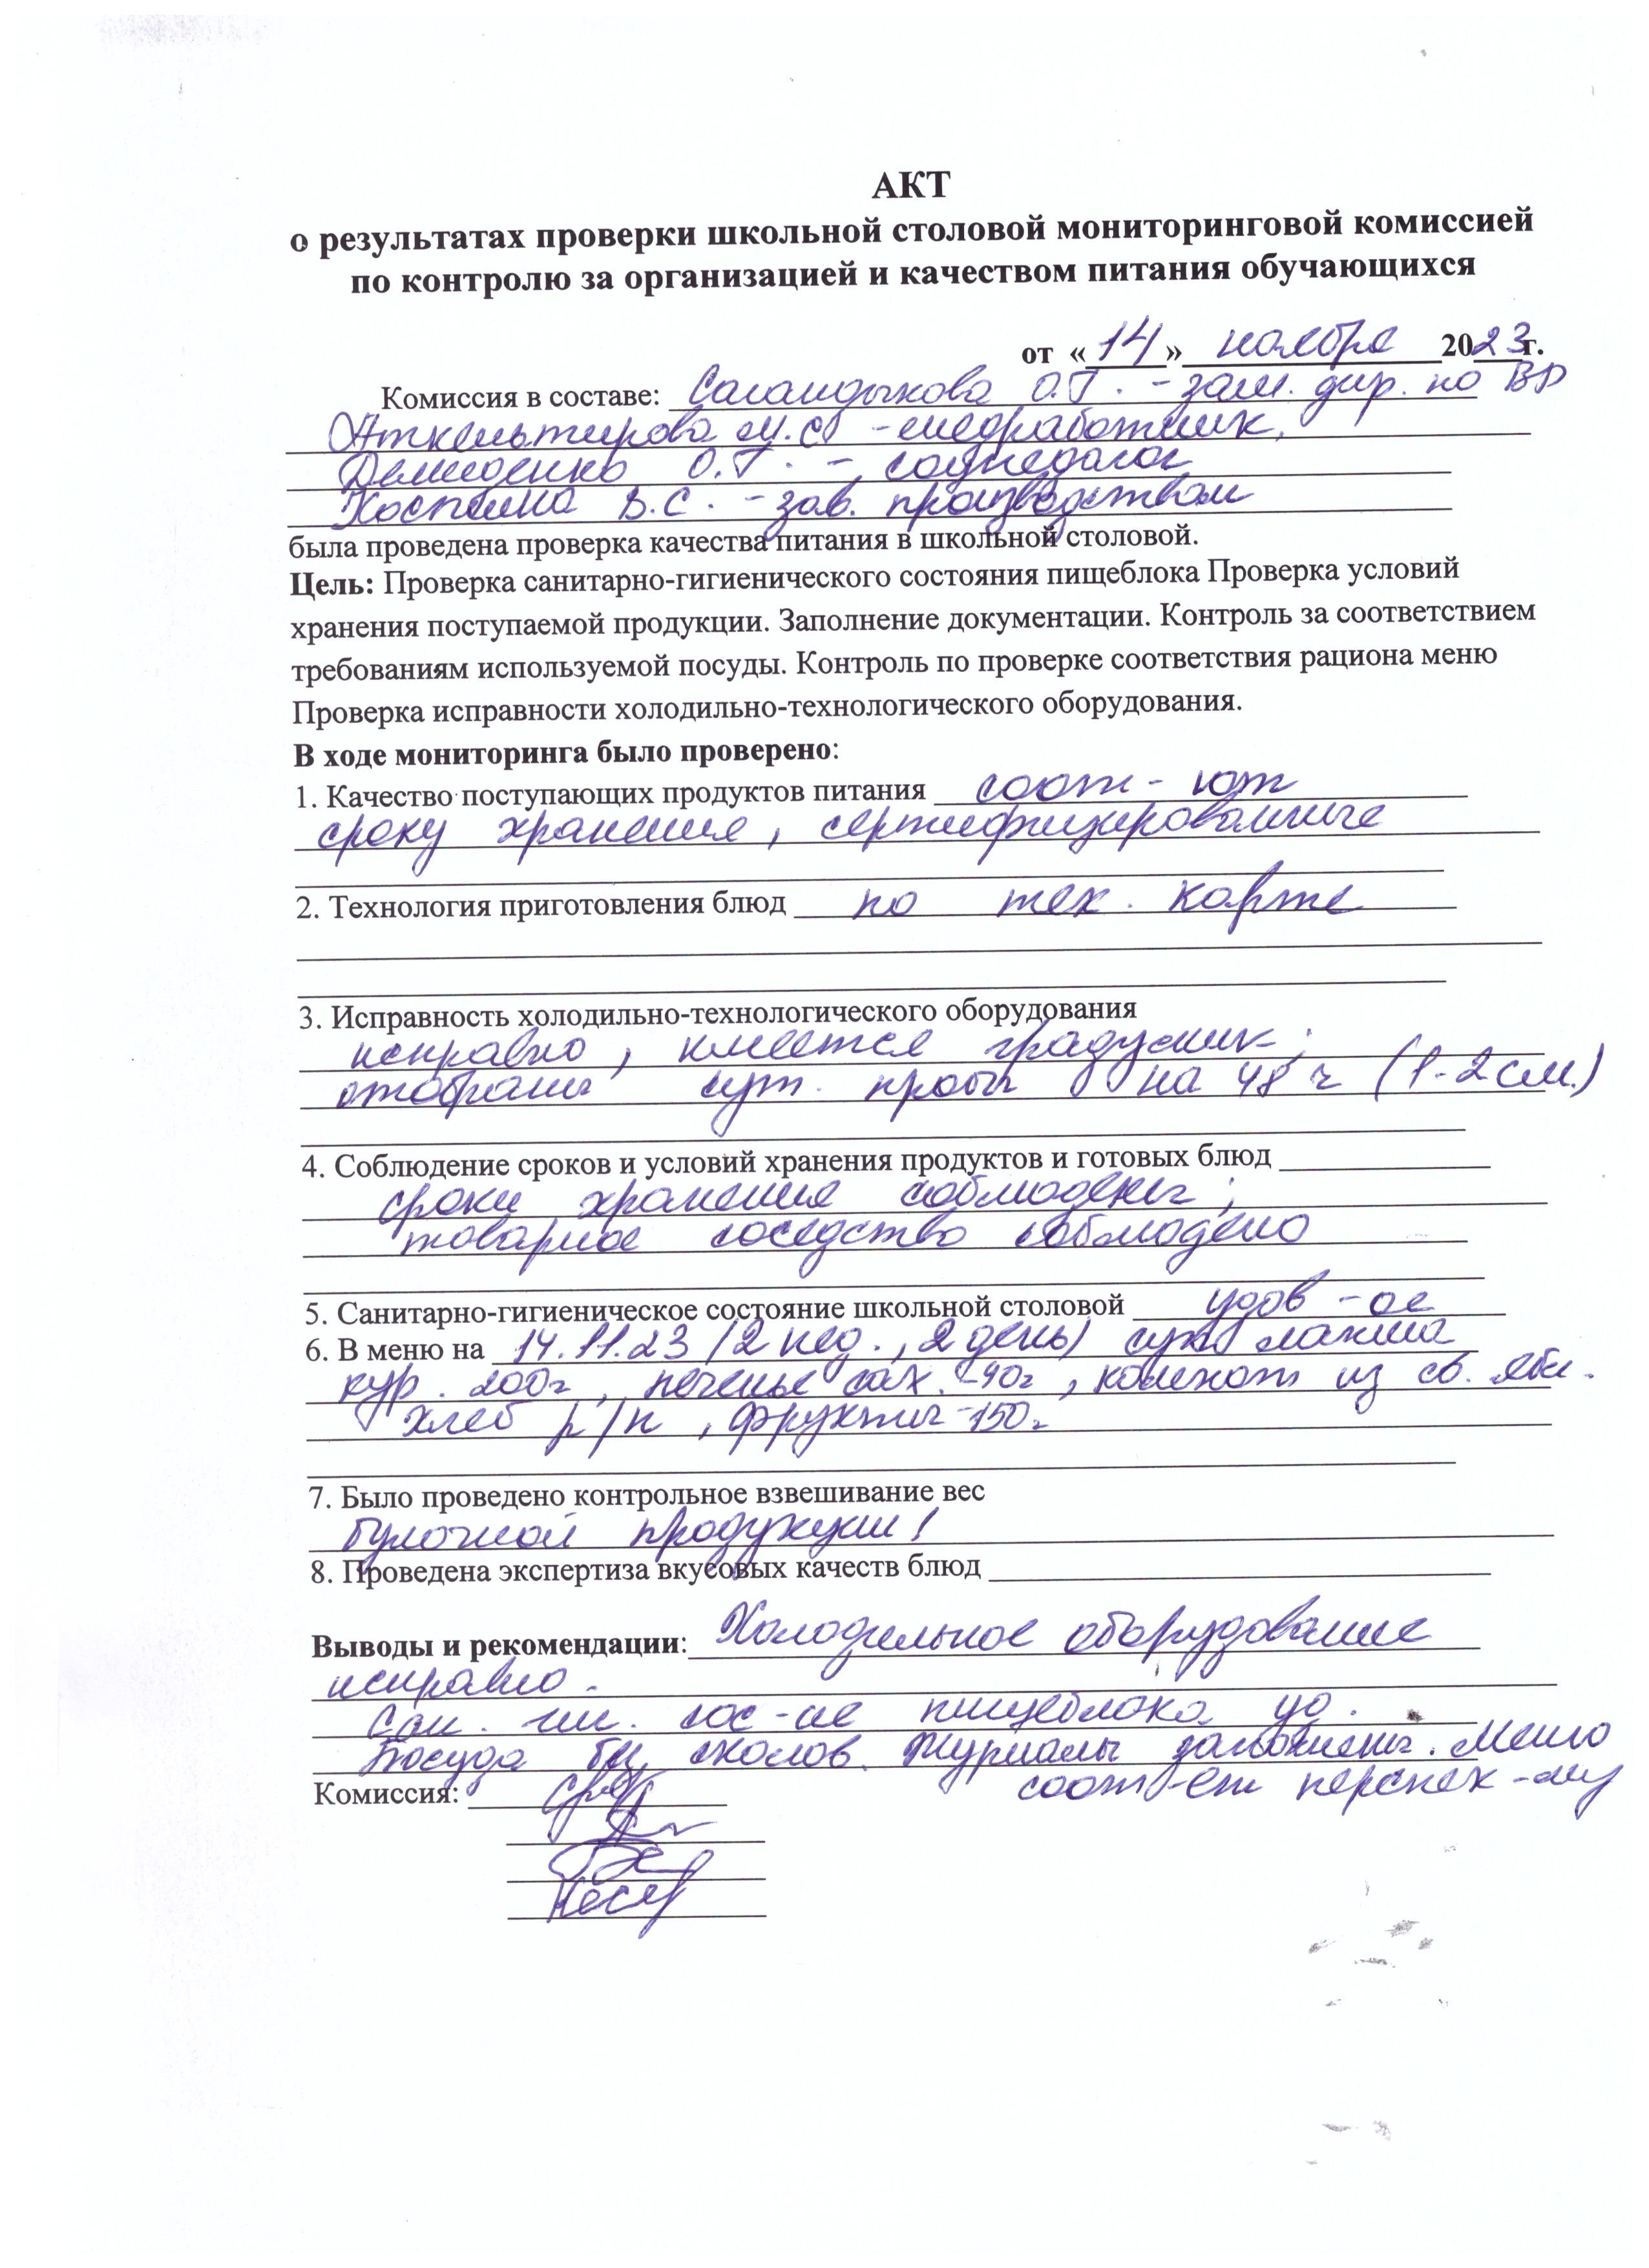 АКТ
о результатах проверки школьной столовой мониторинговой комиссией
по контролю за организацией и качеством питания обучающихся
от « 14 » ноября 2023 г.
Комиссия в составе: Сагандыкова О.Г. - зам. дир. по ВР
М.С. - медработник,
О.Г. - соцпедагог
В.С. - зав. производством
была проведена проверка качества питания в школьной столовой.
Цель: Проверка санитарно-гигиенического состояния пищеблока Проверка условий
хранения поступаемой продукции. Заполнение документации. Контроль за соответствием
требованиям используемой посуды. Контроль по проверке соответствия рациона меню
Проверка исправности холодильно-технологического оборудования.
В ходе мониторинга было проверено:
1. Качество поступающих продуктов питания соот - ют
сроку хранения, сертифицированные
2. Технология приготовления блюд по тех. карте
3. Исправность холодильно-технологического оборудования
исправно, имеется градусник;
отобраны сут. пробы на 48 ч (1-2 см.)
4. Соблюдение сроков и условий хранения продуктов и готовых блюд
сроки хранения соблюдены;
товарное соседство соблюдено
5. Санитарно-гигиеническое состояние школьной столовой удов - ое
6. В меню на 14.11.23 (2 нед., 2 день) суп лапша
кур. 200г, печенье сах. -40г, компот из св. ябл.
хлеб р/п, фрукты -150г
7. Было проведено контрольное взвешивание вес
булочной продукции!
8. Проведена экспертиза вкусовых качеств блюд
Выводы и рекомендации: Холодильное оборудование
исправно.
Сан. гиг. сос-ие пищеблока уд.
Посуда без сколов. Журналы заполнены. Меню
соот-ет перспек-му
Комиссия: